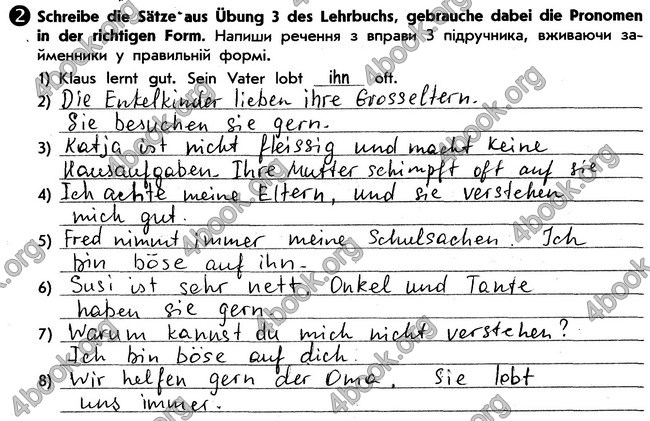 2 Schreibe die Sätze aus Übung 3 des Lehrbuchs, gebrauche dabei die Pronomen
in der richtigen Form. Напиши речення з вправи 3 підручника, вживаючи за-
йменники у правильній формі.
1) Klaus lernt gut. Sein Vater lobt ihn oft.
2) Die Enkelkinder lieben ihre Grosseltern.
Sie besuchen sie gern.
3) Katja ist nicht fleissig und macht keine
Hausaufgaben. Ihre Mutter schimpft oft auf sie
4) Ich achte meine Eltern, und sie verstehen
mich gut.
5) Fred nimmt immer meine Schulsachen. Ich
bin böse auf ihn.
6) Susi ist sehr nett. Onkel und Tante
haben sie gern.
7) Warum kannst du mich nicht verstehen?
Ich bin böse auf dich.
8) Wir helfen gern der Oma. Sie lobt
uns immer.
4book.org